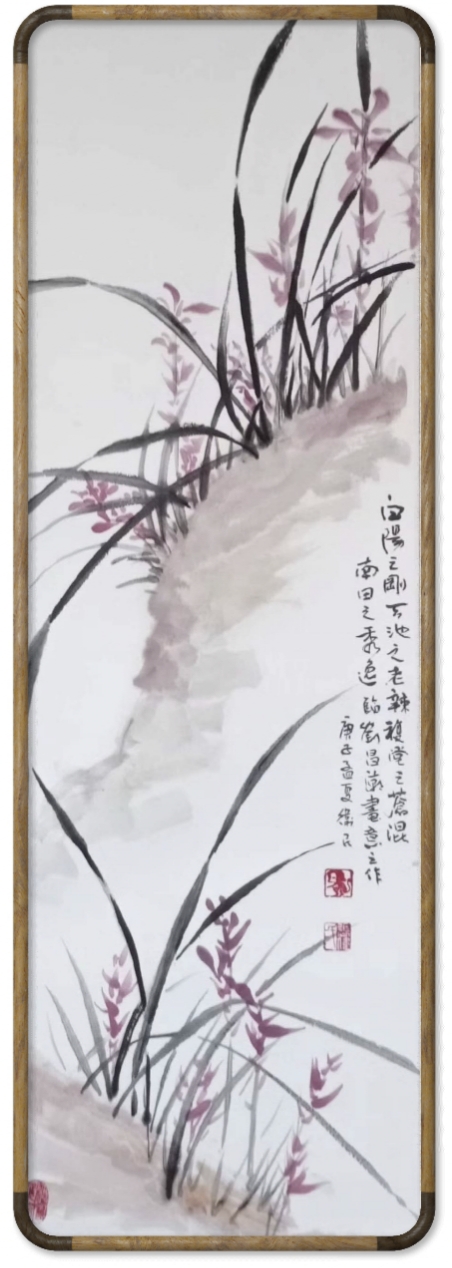 白陽之剛天池之老辣複堂之蒼混
南田之秀逸臨劉昌潮畫意之作
庚子首夏衛民